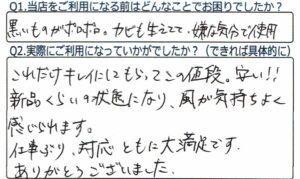 Q1.当店をご利用になる前はどんなことでお困りでしたか？
黒いものがポロポロ。カビも生えてて、嫌な気分で使用
Q2.実際にご利用になっていかがでしたか？（できれば具体的に）
これだけキレイにしてもらってこの値段。安い!!
新品くらいの状態になり、風が気持ちよく
感じられます。
仕事ぶり、対応 ともに大満足です.
ありがとうございました.